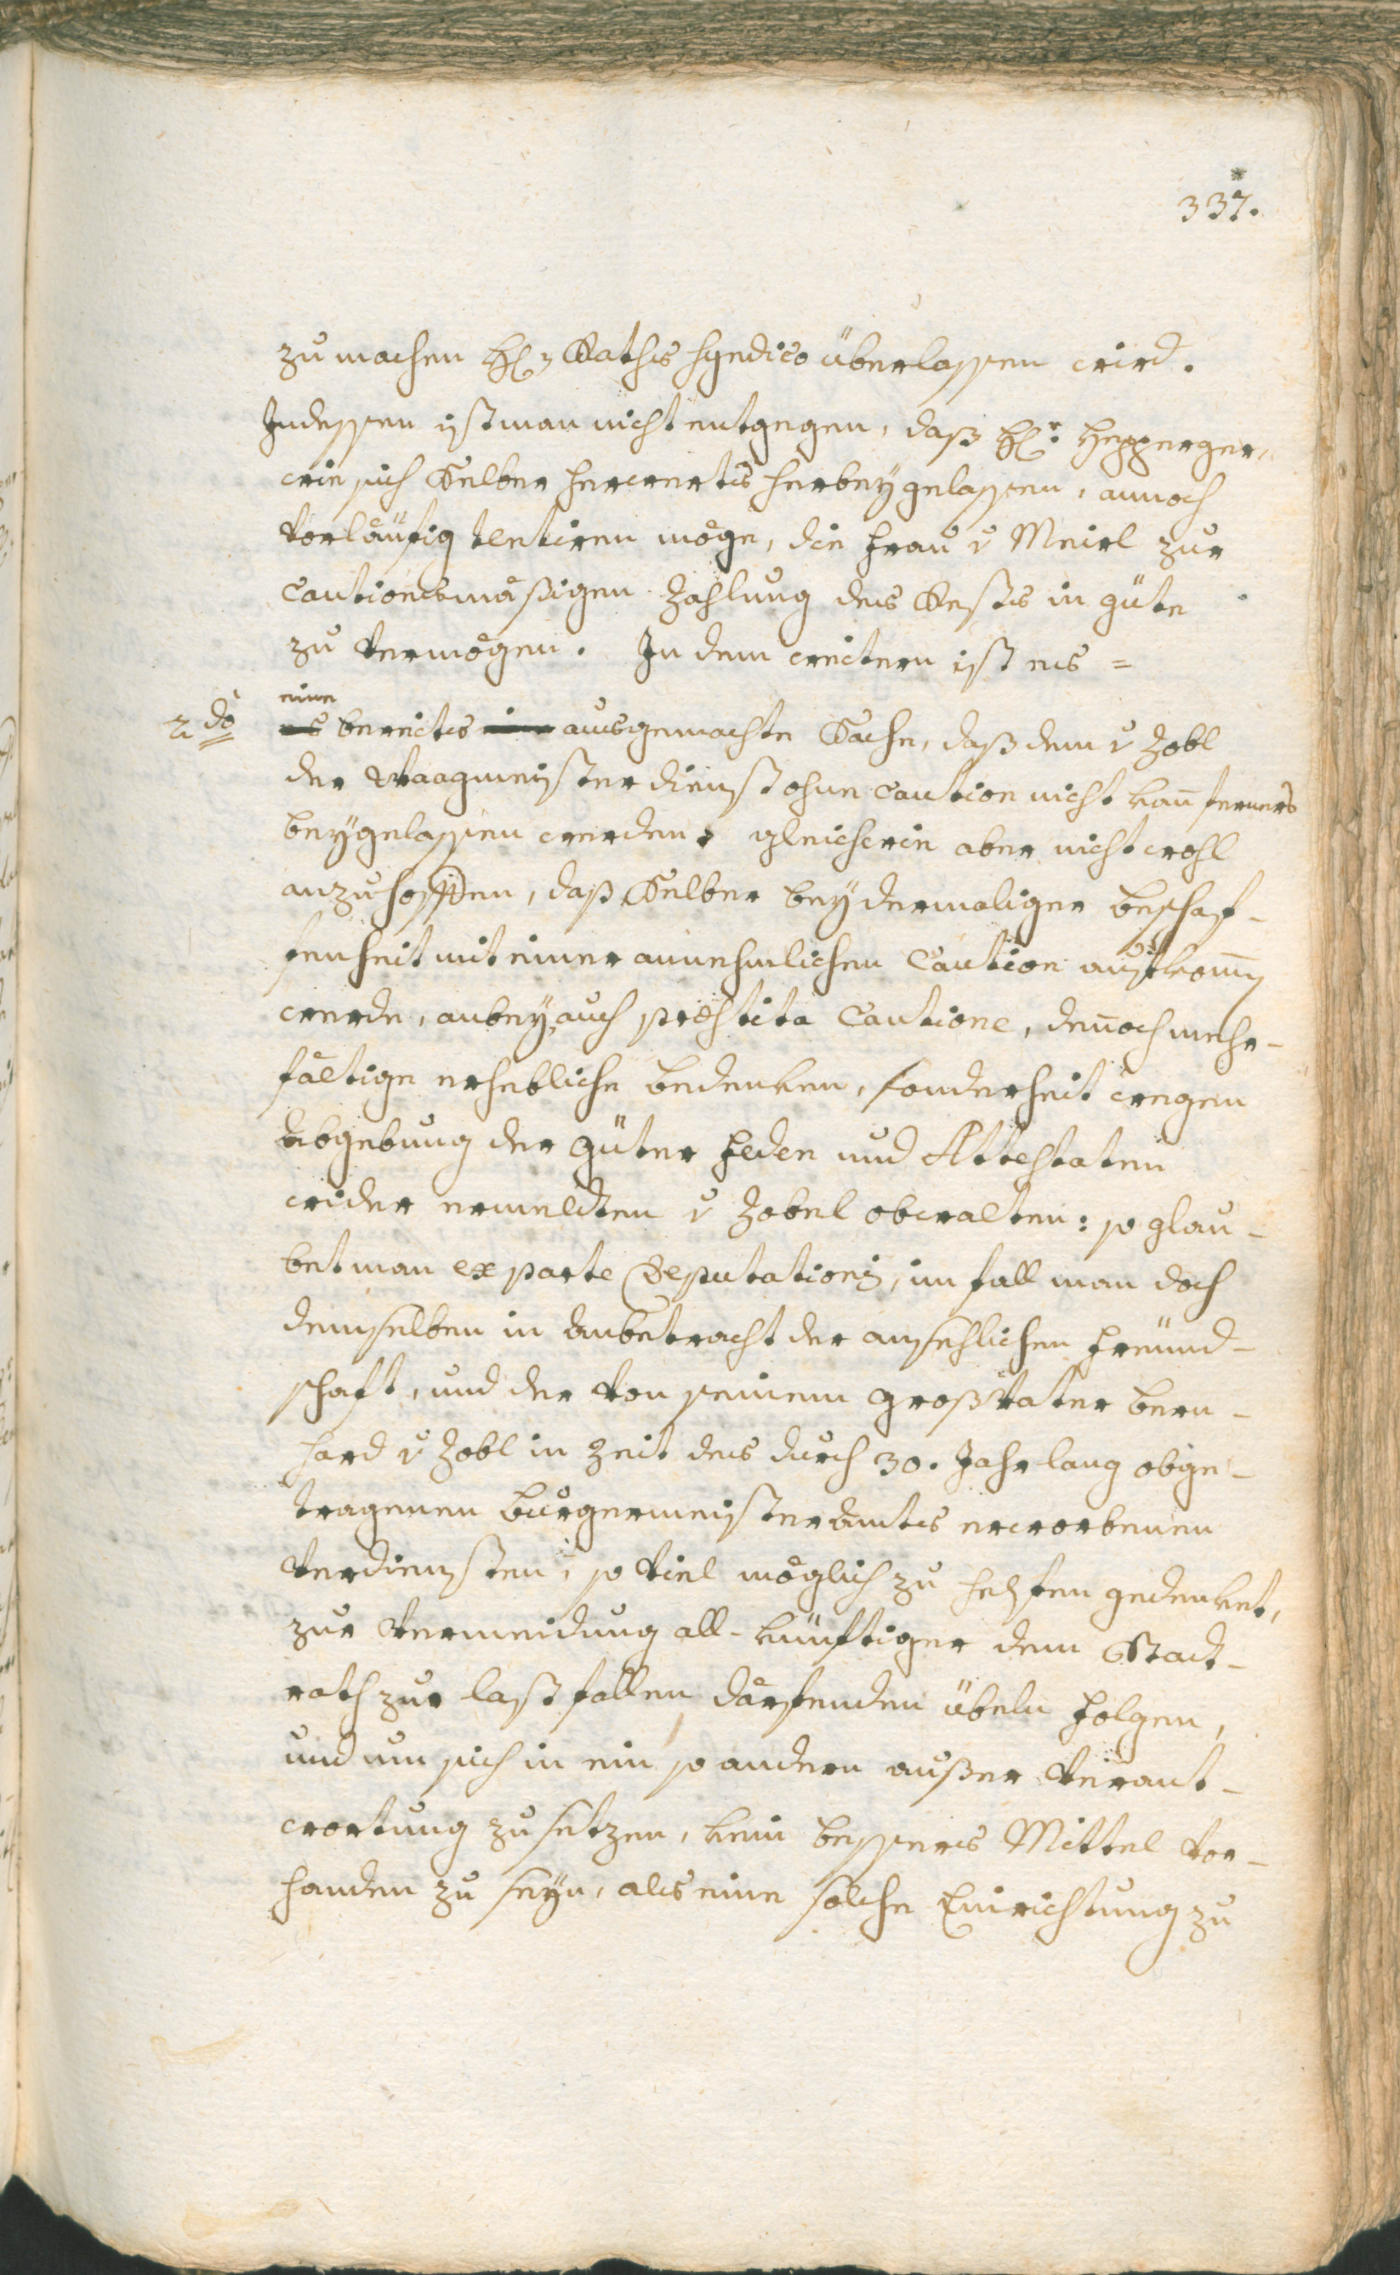 337.
zu machen H. Raths Syndico überlassen wird.
Indessen ist man nicht entgegen, daß Hr. Hepperger,
wie sich Selber herwerts herbey gelassen, annoch
vorläufig tentiren möge, die Frau v Meirl zur
Cautionsmäßigen Zahlung des Rests in güte
zu vermögen. In dem weitern ist es =
2do
eine
es bereits eine ausgemachte Sache, daß dem v Zobl
der Waagmeister dienst ohne Caution nicht kan̄ ferners
beygelassen werden, gleichwie aber nicht wohl
anzuhoffen, daß Selber bey dermaliger beschaf-
fenheit mit einer annehmlichen Caution aufkom̄en
werde, anbey auch præstita Cautione, den̄och mehr-
fältige erhebliche bedenken, sonderheit wegen
Abgebung der Güter Feden und Attestaten
wider ermeldten v Zobel obwalten: so glau-
bet man ex parte Deputationis, im fall man doch
demselben in Anbetracht der ansehlichen Freünd-
schaft, und der von seinem Großvater Bern-
hard v Zobl in Zeit des durch 30. Jahr lang obge-
tragenen Burgermeister Amts erworbenen
Verdiensten, so viel möglich zu helfen gedenket,
zur Vermeidung all-künftiger dem Stadt-
rath zur last fallen därfenden übeln Folgen,
und um sich in ein so andern außer Verant-
wortung zu setzen, kein besseres Mittel vor-
handen zu seyn, als eine solche Einrichtung zu